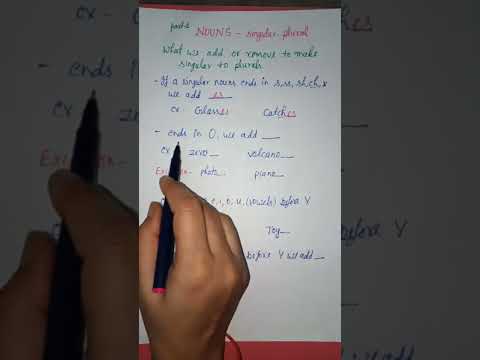 part-1
NOUNS - singular plural
What we add or remove to make
singular to plurals.
- If a singular nouns ends in s, ss, sh, ch, x
we add es
ex. Glasses Catches
- ends in O, we add __
ex zero__ volcano__
photo__ piano__
i, o, u, (vowels) before Y
Toy__
before Y we add __
- ends
ex
Ex